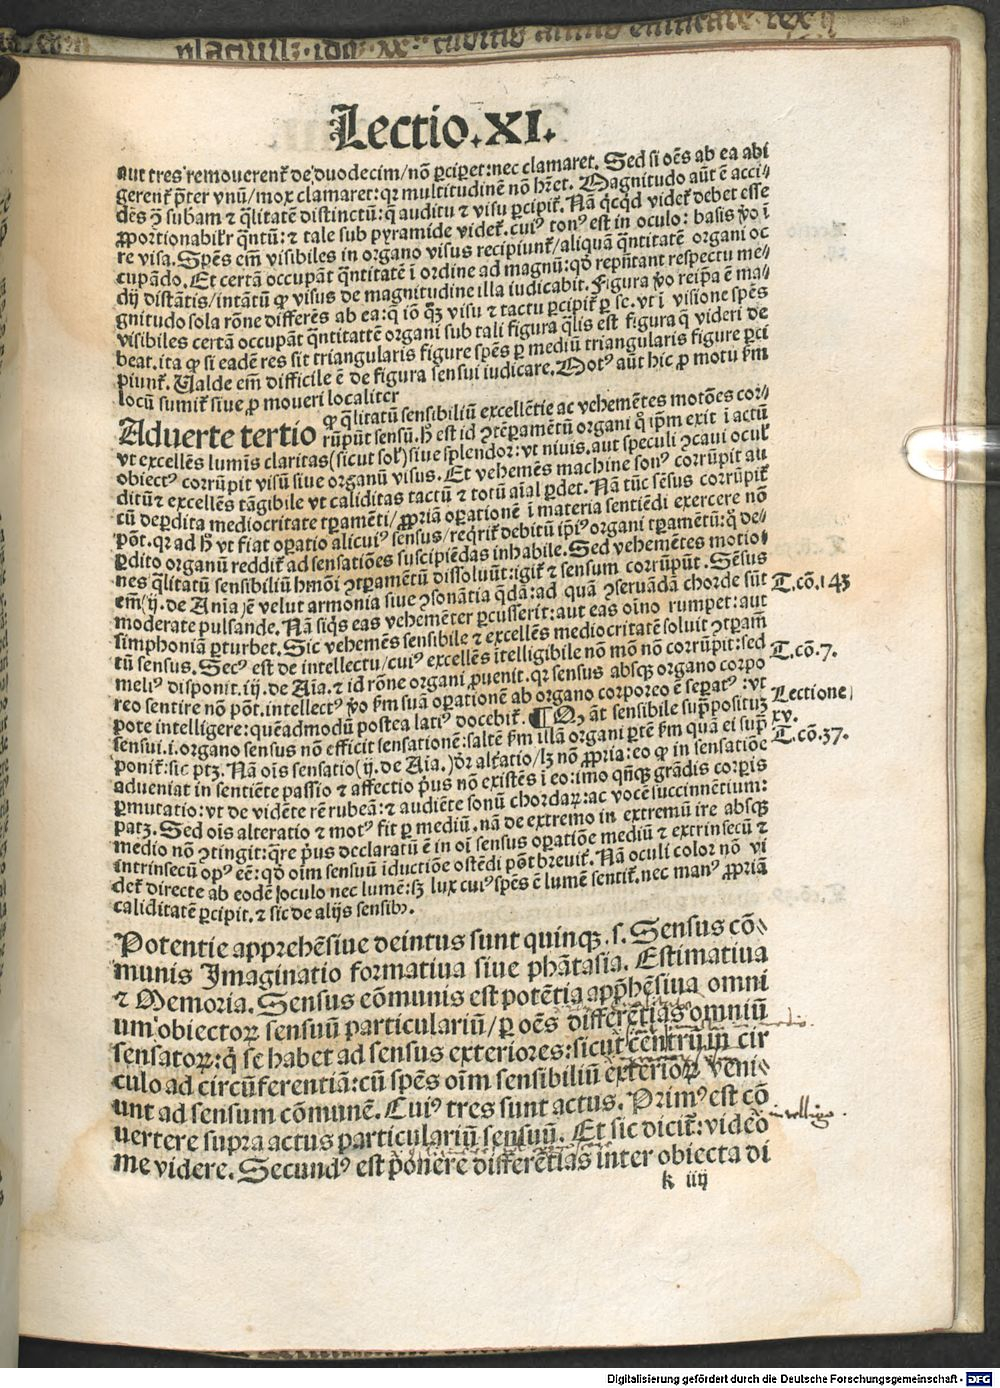 Lectio.XI.
aut tres remouerent̃ de duodecim/nō ꝑciperet:nec clamaret. Sed si oẽs ab ea abi
gerent̃ p̃ter vnũ/mox clamaret:qꝛ multitudinẽ nō hr̃et. Magnitudo aũt ẽ acci⸗
dẽs ꝯ̃ subam ⁊ q̃litatẽ distinctũ:q̃ auditu ⁊ visu ꝑcipit̃. Nã q̃cq̃d videt̃ debet esse
ꝓportionabilr̃ q̃ntũ:⁊ tale sub pyramide videt̃.cuiꝰ conꝰ est in oculo: basis ꝟo ĩ
re visa.Spẽs em̃ visibiles in organo visus recipiunt̃/aliquã q̃ntitatẽ organi oc
cupãdo.Et certã occupãt q̃ntitatẽ ĩ ordine ad magnũ:qd̃ repñtant respectu me⸗
dij distãtis/intãtũ ꝙ visus de magnitudine illa iudicabit.Figura ꝟo reip̃a ẽ ma⸗
gnitudo sola rõne differẽs ab ea:q̃ iõ q̃ꝫ visu ⁊ tactu ꝑcipit̃ ꝑ se.vt ĩ visione spẽs
visibiles certã occupãt q̃ntitatẽ organi sub tali figura q̃lis est figura q̃ videri de
beat.ita ꝙ si eadẽ res sit triangularis figure spẽs ꝑ mediũ triangularis figure ꝑci
piunt̃.Valde em̃ difficile ẽ de figura sensui iudicare.Motꝰ aũt hic ꝓ motu ẜm
locũ sumit̃ siue ꝓ moueri localiter
Aduerte tertio ꝙ q̃litatũ sensibiliũ excellẽtie ac vehemẽtes motões cor⸗
rũpũt sensũ.h̃ est id ꝯtẽꝑamẽtũ organi q̃ ip̃m exit ĩ actũ
vt excellẽs lumĩs claritas(sicut sol̃)siue splendor:vt niuis.aut speculi ꝯcaui ocul̃
obiectꝰ corrũpit visũ siue organũ visus. Et vehemẽs machine sonꝰ corrũpit au
ditũ⁊ excellẽs tãgibile vt caliditas tactũ ⁊ totũ aĩal ꝑdet. Nã tũc sẽsus corrũpit̃
cũ deꝑdita mediocritate tꝑamẽti/ꝓpriã oꝑationẽ ĩ materia sentiẽdi exercere nō
põt.qꝛ ad h̃ vt fiat oꝑatio alicuiꝰ sensus/reqrit̃ debitũ ip̃iꝰ organi tꝑamẽtũ:q̃ de⸗
ꝑdito organũ reddit̃ ad sensatiões suscipiẽdas inhabile.Sed vehemẽtes motio⸗
nes q̃litatũ sensibiliũ hmõi ꝯtꝑamẽtũ dissoluũt:igit̃ ⁊ sensum corrũpũt. Sẽsus
em̃(ij.de Anĩa)ẽ velut armonia siue ꝯsonãtia q̃dã:ad quã ꝯseruãdã chorde sũt
moderate pulsande.Nã siq̃s eas vehemẽter ꝑcusserit:aut eas oĩno rumpet:aut
simphoniã ꝑturbet.Sic vehemẽs sensibile ⁊ excellẽs mediocritatẽ soluit ꝯtꝑam̃
tũ sensus.Secꝰ est de intellectu/cuiꝰ excellẽs ĩtelligibile nō mō nō corrũpit:sed
meliꝰ disponit.iij.de Aĩa.⁊ id rõne organi ꝓuenit.qꝛ sensus absqꝫ organo corpo
reo sentire nō põt.intellectꝰ ꝟo ẜm suã oꝑationẽ ab organo corporeo ẽ seꝑatꝰ:vt
pote intelligere:quẽadmodũ postea latiꝰ docebit̃. ¶ Q̃ aũt sensibile supp̃osituꝫ
sensui.i.organo sensus nō efficit sensationẽ:saltẽ ẜm illã organi ꝑtẽ ẜm quã ei sup̃
ponit̃:sic ptꝫ.Nã oĩs sensatio(ij.de Aĩa.)dr̃ alt̃atio/lꝫ nō ꝓpria:eo ꝙ in sensatiõe
adueniat in sentiẽte passio ⁊ affectio p̃us nō existẽs ĩ eo:imo qñqꝫ grãdis corꝑis
ꝑmutatio:vt de vidẽte rẽ rubeã:⁊ audiẽte sonũ chordaꝝ:ac vocẽ succinnẽtium:
patꝫ.Sed oĩs alteratio ⁊ motꝰ fit ꝑ mediũ.nã de extremo in extremũ ire absqꝫ
medio nō ꝯtingit:q̃re p̃us declaratũ ẽ in oĩ sensus oꝑatiõe mediũ ⁊ extrinsecũ ⁊
intrinsecũ opꝰ eẽ:qd̃ oĩm sensuũ iductiõe ostẽdi põt breuit̃.Nã oculi color nō vi
det̃ directe ab eodẽ oculo nec lumẽ:sꝫ lux cuiꝰ spẽs ẽ lumẽ sentit̃.nec manꝰ ꝓpriã
caliditatẽ ꝑcipit.⁊ sic de alijs sensibꝰ.
Potentie apprehẽsiue deintus sunt quinqꝫ.s.Sensus cō⸗
munis Imaginatio formatiua siue phãtasia.Estimatiua
⁊ Memoria.Sensus cõmunis est potẽtia app̃hẽsiua omni
um obiectoꝝ sensuũ particulariũ/ꝑ oẽs differẽtias omniũ
sensatoꝝ:q̃ se habet ad sensus exteriores:sicut centrũ in cir
culo ad circũferentiã:cũ spẽs oĩm sensibiliũ exterioꝝ veni⸗
unt ad sensum cõmunẽ.Cuiꝰ tres sunt actus.Primꝰ est cō
uertere supra actus particulariũ sensuũ.Et sic dicit̃:video
me videre.Secundꝰ est ponere differẽtias inter obiecta di
k iiij
T.cō.143
T.cō.7.
Lectione
xv.
T.cō.37.
Digitalisierung gefördert durch die Deutsche Forschungsgemeinschaft - DFG